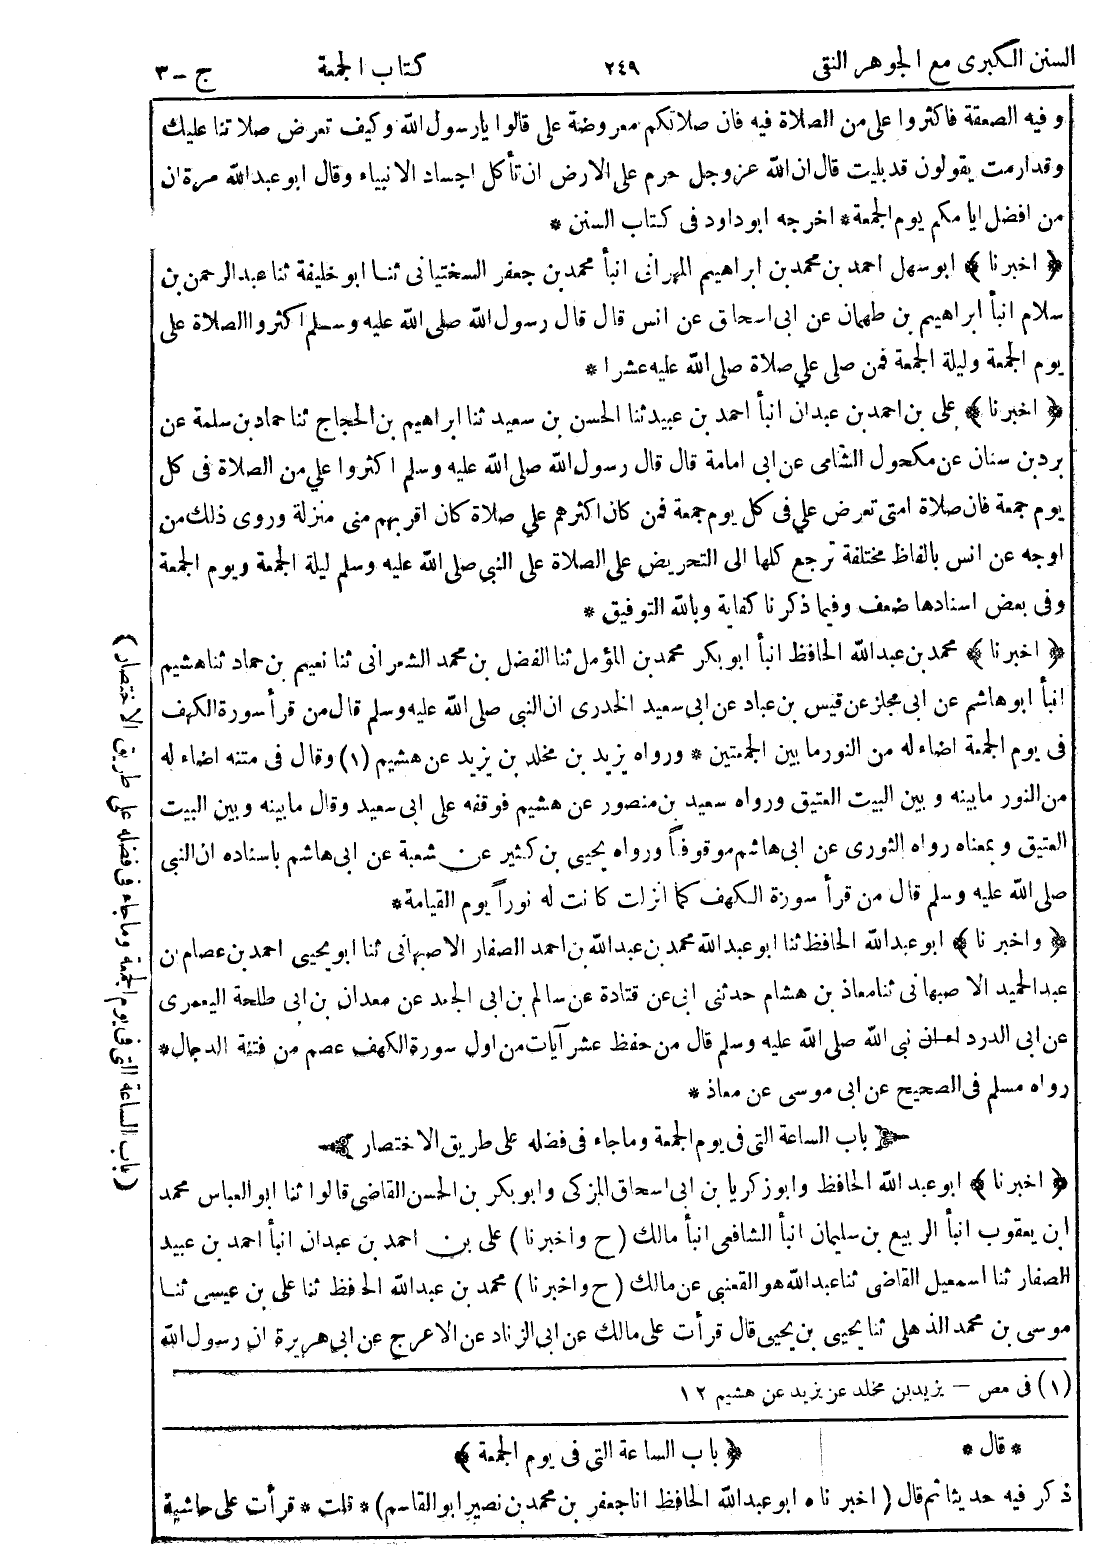 السنن الكبرى مع الجوهر النقى ٢٤٩ كتاب الجمعة ج - ٣
و فيه الصعقة فاكثروا على من الصلاة فيه فان صلاتكم معروضة على قالوا يارسول الله وكيف تعرض صلاتنا عليك
وقدارمت يقولون قدبليت قال ان الله عزوجل حرم على الارض ان تأكل اجساد الانبياء وقال ابو عبدالله مرة ان
من افضل ايامكم يوم الجمعة * اخرجه ابوداود فى كتاب السنن *
﴿ اخبرنا ﴾ ابوسهل احمد بن محمد بن ابراهيم المهرانى انبأ محمد بن جعفر السختيانى ثنا ابو خليفة ثنا عبدالرحمن بن
سلام انبأ ابراهيم بن طهمان عن ابى اسحاق عن انس قال قال رسول الله صلى الله عليه وسلم اكثروا الصلاة على
يوم الجمعة وليلة الجمعة فمن صلى علي صلاة صلى الله عليه عشرا *
﴿ اخبرنا ﴾ على بن احمد بن عبدان انبأ احمد بن عبيد ثنا الحسن بن سعيد ثنا ابراهيم بن الحجاج ثنا حماد بن سلمة عن
برد بن سنان عن مكحول الشامى عن ابى امامة قال قال رسول الله صلى الله عليه وسلم اكثروا علي من الصلاة فى كل
يوم جمعة فان صلاة امتى تعرض علي فى كل يوم جمعة فمن كان اكثرهم علي صلاة كان اقربهم منى منزلة وروى ذلك من
اوجه عن انس بالفاظ مختلفة ترجع كلها الى التحريض على الصلاة على النبي صلى الله عليه وسلم ليلة الجمعة ويوم الجمعة
وفى بعض اسنادها ضعف وفيما ذكرنا كفاية وبالله التوفيق *
﴿ اخبرنا ﴾ محمد بن عبدالله الحافظ انبأ ابو بكر محمد بن المؤمل ثنا الفضل بن محمد الشعرانى ثنا نعيم بن حماد ثنا هشيم
انبأ ابوهاشم عن ابى مجلز عن قيس بن عباد عن ابى سعيد الخدرى ان النبي صلى الله عليه وسلم قال من قرأ سورة الكهف
فى يوم الجمعة اضاء له من النور ما بين الجمعتين * ورواه يزيد بن مخلد بن يزيد عن هشيم (١) وقال فى متنه اضاء له
من النور ما بينه و بين البيت العتيق ورواه سعيد بن منصور عن هشيم فوقفه على ابى سعيد وقال ما بينه وبين البيت
العتيق و بمعناه رواه الثورى عن ابى هاشم موقوفاً ورواه يحيى بن كثير عن شعبة عن ابى هاشم باسناده ان النبى
صلى الله عليه وسلم قال من قرأ سورة الكهف كما انزلت كانت له نوراً يوم القيامة *
﴿ واخبرنا ﴾ ابو عبدالله الحافظ ثنا ابو عبدالله محمد بن عبدالله بن احمد الصفار الاصبهانى ثنا ابو يحيى احمد بن عصام بن
عبدالحميد الاصبهانى ثنا معاذ بن هشام حدثنى ابى عن قتادة عن سالم بن ابى الجعد عن معدان بن ابى طلحة اليعمرى
عن ابى الدرداء ان نبى الله صلى الله عليه وسلم قال من حفظ عشر آيات من اول سورة الكهف عصم من فتنة الدجال *
رواه مسلم فى الصحيح عن ابى موسى عن معاذ *
باب الساعة التى فى يوم الجمعة وماجاء فى فضله على طريق الاختصار
﴿ اخبرنا ﴾ ابو عبد الله الحافظ وابو زكريا بن ابى اسحاق المزكى وابو بكر بن الحسن القاضى قالوا ثنا ابو العباس محمد
ابن يعقوب انبأ الربيع بن سليمان انبأ الشافعى انبأ مالك (ح واخبرنا) على بن احمد بن عبدان انبأ احمد بن عبيد
الصفار ثنا اسمعيل القاضى ثنا عبدالله هو القعنبي عن مالك (ح واخبرنا) محمد بن عبدالله الحافظ ثنا على بن عيسى ثنا
موسى بن محمد الذهلى ثنا يحيى بن يحيى قال قرأت على مالك عن ابى الزناد عن الاعرج عن ابى هريرة ان رسول الله
(١) فى مص - يزيد بن مخلد عن يزيد عن هشيم ١٢
* قال * ﴿ باب الساعة التى فى يوم الجمعة ﴾
ذكر فيه حديثا ثم قال (اخبرناه ابو عبدالله الحافظ انا جعفر بن محمد بن نصير ابو القاسم) * قلت * قرأت على حاشية
(باب الساعة التى فى يوم الجمعة وماجاء فى فضله على طريق الاختصار)